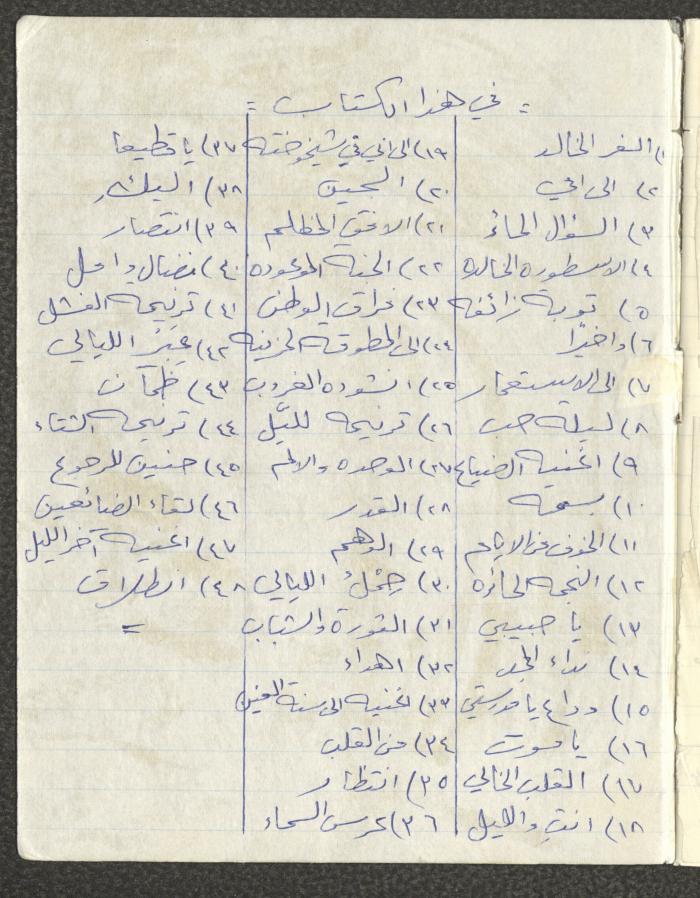 = في هذا الكتاب =
١) السفر الخالد
٢) الى اخي
٣) السؤال الحائر
٤) الاسطوره الخالده
٥) توبة زائفه
٦) واخيرًا
٧) الى الاستعمار
٨) ليلة حب
٩) اغنية الضياع
١٠) بسمه
١١) الخوف من الايام
١٢) النجمه الحائره
١٣) يا حبيبي
١٤) نداء المجد
١٥) وداع يا مدرستي
١٦) يا موت
١٧) القلب الخالي
١٨) انتِ والليل
١٩) الى ابي في شيخوخته
٢٠) السجين
٢١) الافق المظلم
٢٢) الجنه الموعوده
٢٣) فراق الوطن
٢٤) الى المطوقة الحزينه
٢٥) انشوده الغروب
٢٦) ترنيمه لليّل
٢٧) الوحده والالم
٢٨) القدر
٢٩) الوهم
٣٠) حِمْلُ الليالي
٣١) الثورة والشباب
٣٢) اهداء
٣٣) اغنيه الى سنة الفين
٣٤) من القلب
٣٥) انتظار
٣٦) عرس السماء
٣٧) يا قطيعا
٣٨) اليكِ
٣٩) انتصار
٤٠) نضال وامل
٤١) ترنيمه الفشل
٤٢) عِبَرُ الليالي
٤٣) ظمآن
٤٤) ترنيمه الشتاء
٤٥) حنين للرجوع
٤٦) لقاء الضائعين
٤٧) اغنية آخر الليل
٤٨) انطلاق
=